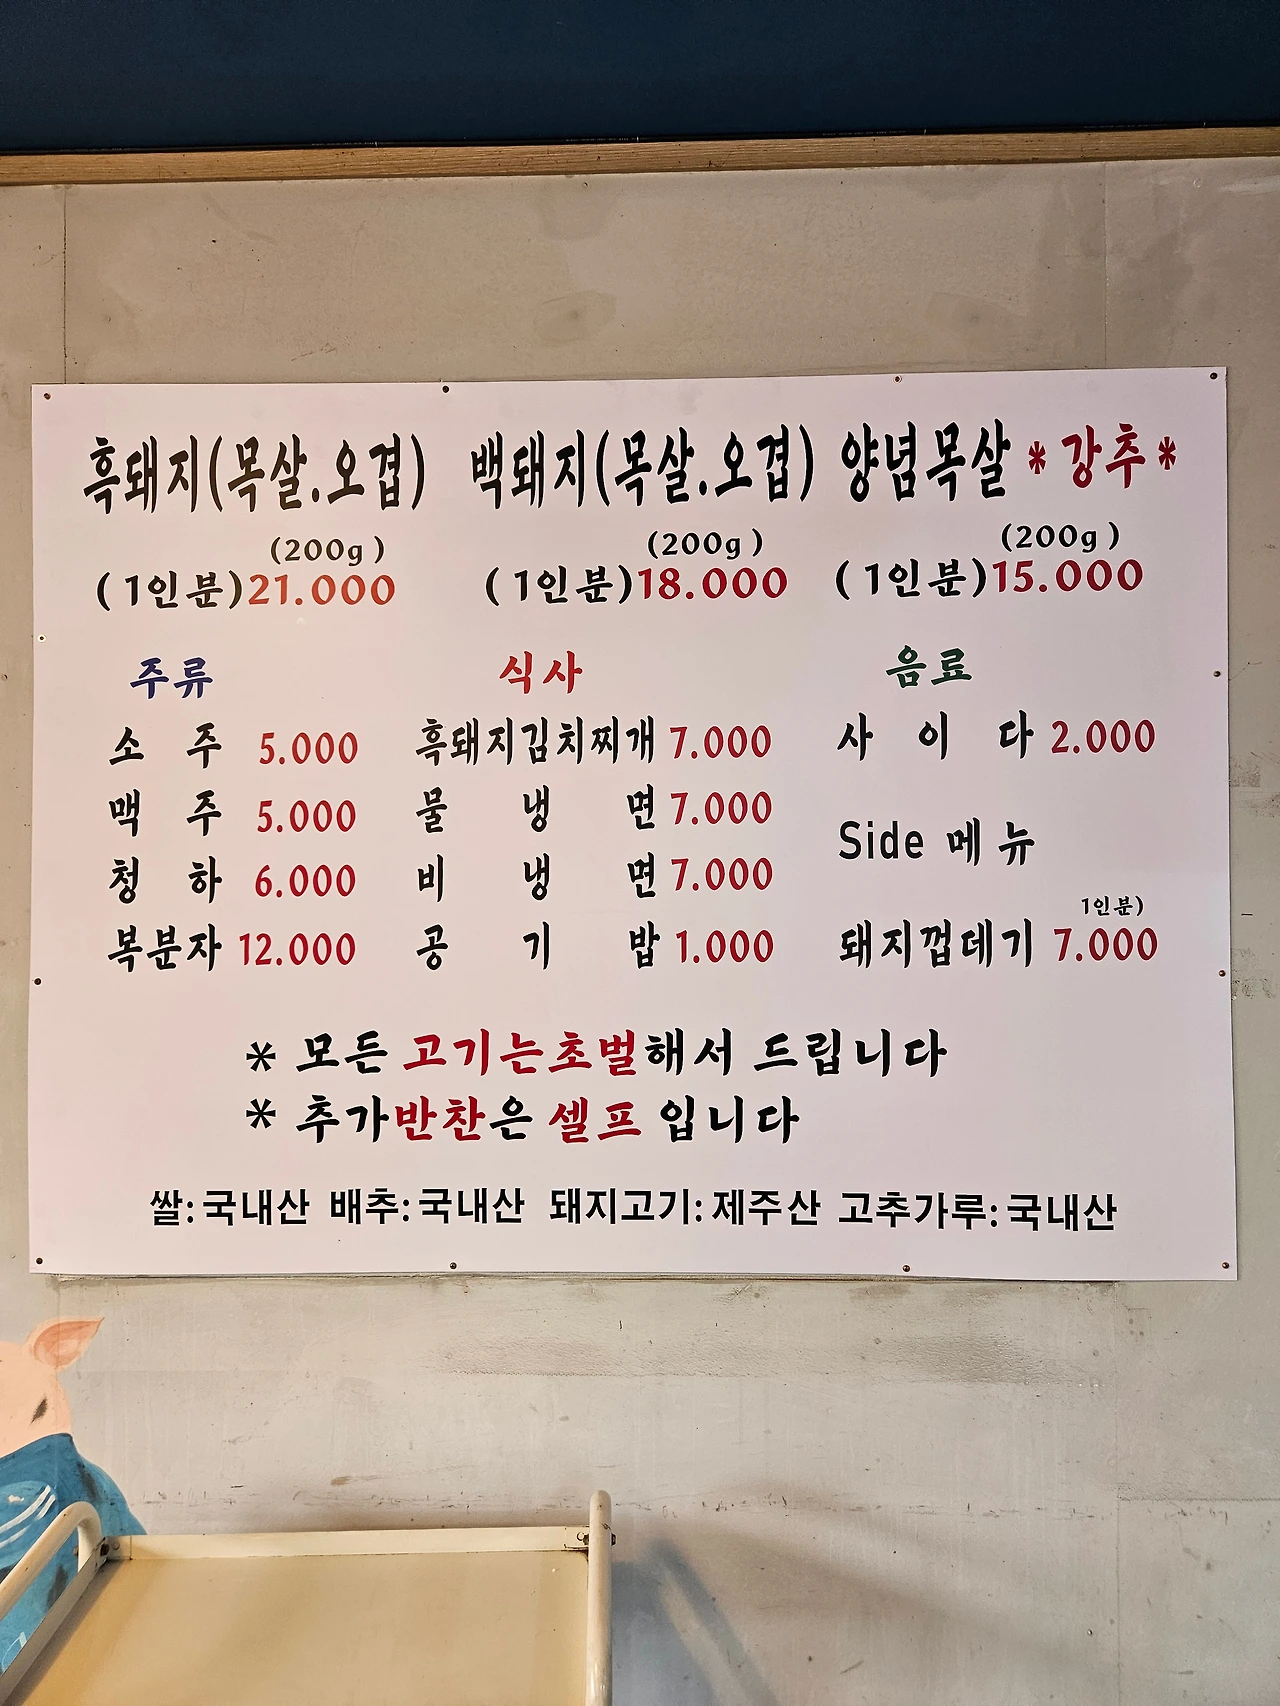 흑돼지(목살.오겹) 백돼지(목살.오겹) 양념목살 *강추*
(200g) (200g) (200g)
(1인분)21.000 (1인분)18.000 (1인분)15.000
주류 식사 음료
소 주 5.000 흑돼지김치찌개 7.000 사 이 다 2.000
맥 주 5.000 물 냉 면 7.000
Side 메뉴
청 하 6.000 비 냉 면 7.000
1인분)
복분자 12.000 공 기 밥 1.000 돼지껍데기 7.000
* 모든 고기는초벌해서 드립니다
* 추가반찬은 셀프 입니다
쌀:국내산 배추:국내산 돼지고기:제주산 고추가루:국내산